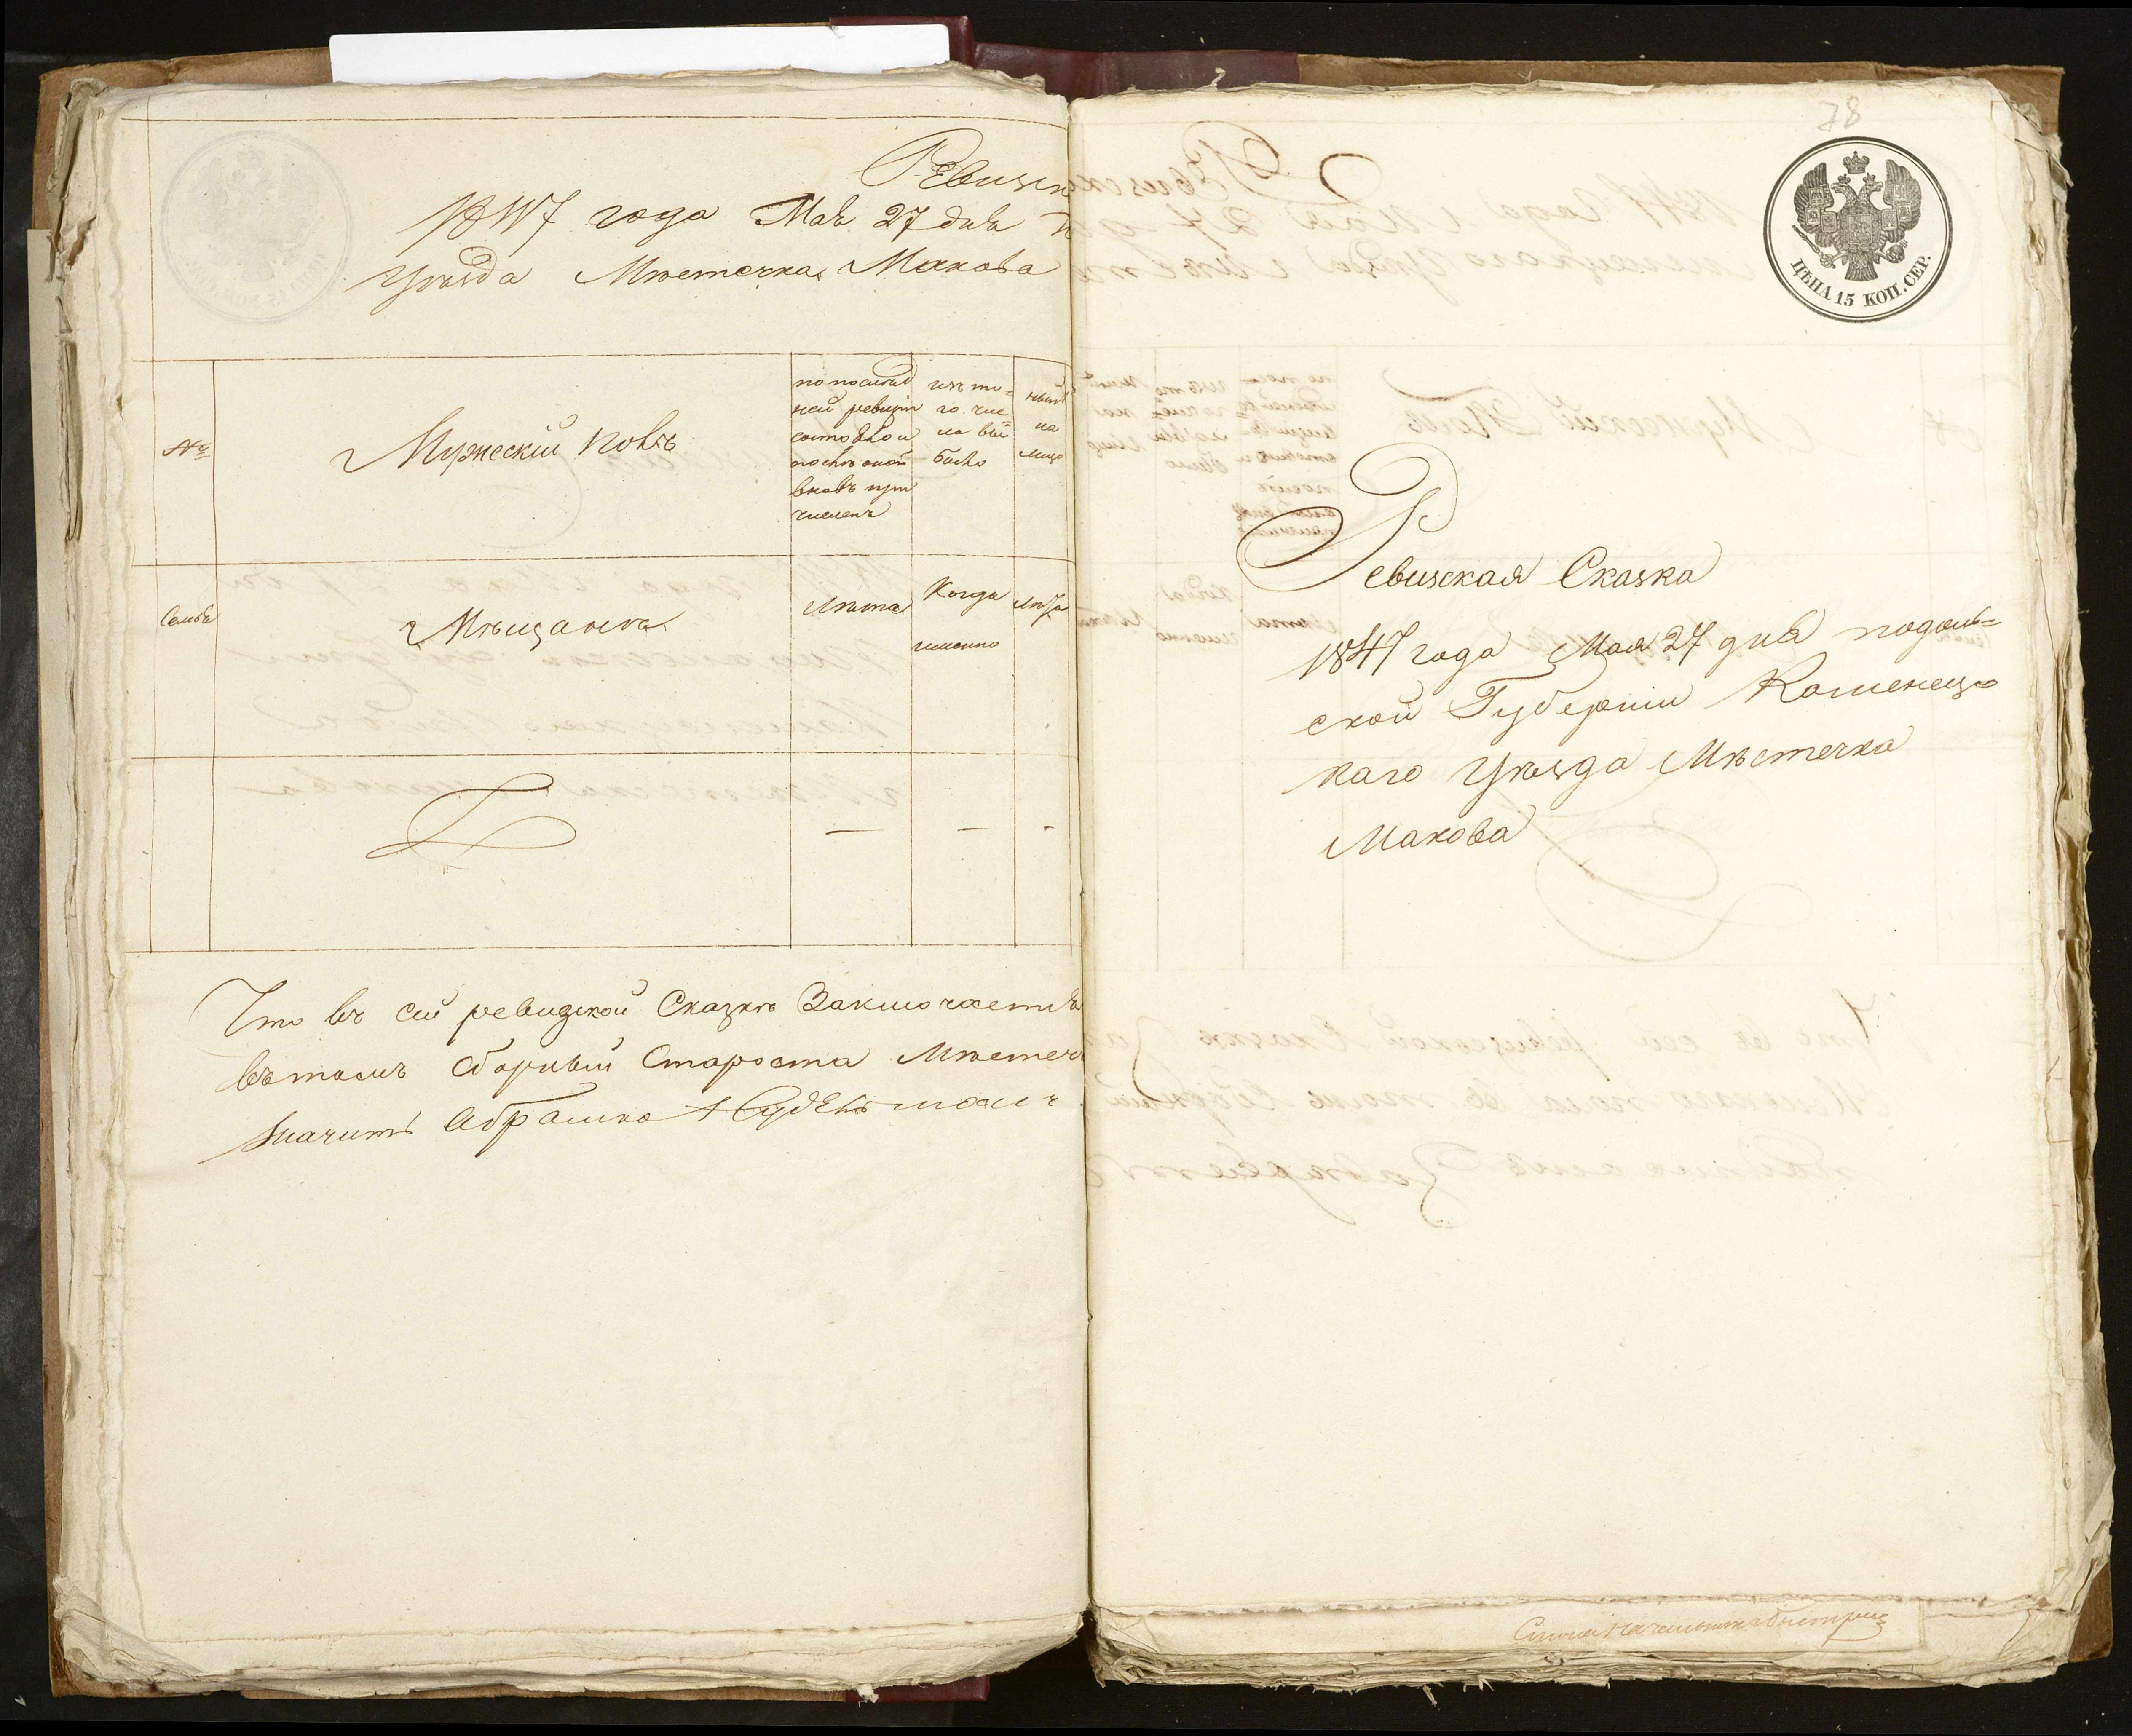 Ревизск
1847 года Мая 27 дня
Уѣзда Мѣстечка Макова
№
Мужескій полъ
по послѣд
ней ревизіи
состояло и
послѣ оной
вновь при
численъ
изъ то=
го чис
ла вы
было
нынѣ
на
лицо
Семьи
Мѣщанѣ
Лѣта
Когда
именно
Лѣта
Что въ сей ревизской Сказкѣ Заключается
въ томъ Сборный Староста Мѣстеч
Значитъ Абрамко
78
ЦѢНА 15 КОП. СЕР.
Ревизская Сказка
1847 года Мая 27 дня подоль=
ской Губерніи Каменец=
каго Уѣзда Мѣстечка
Макова